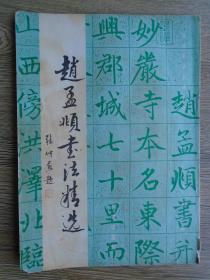 趙孟頫書并
妙嚴寺本名東際
興郡城七十里而
傍洪澤北臨
山西
趙孟頫書法精选
張仲愈題